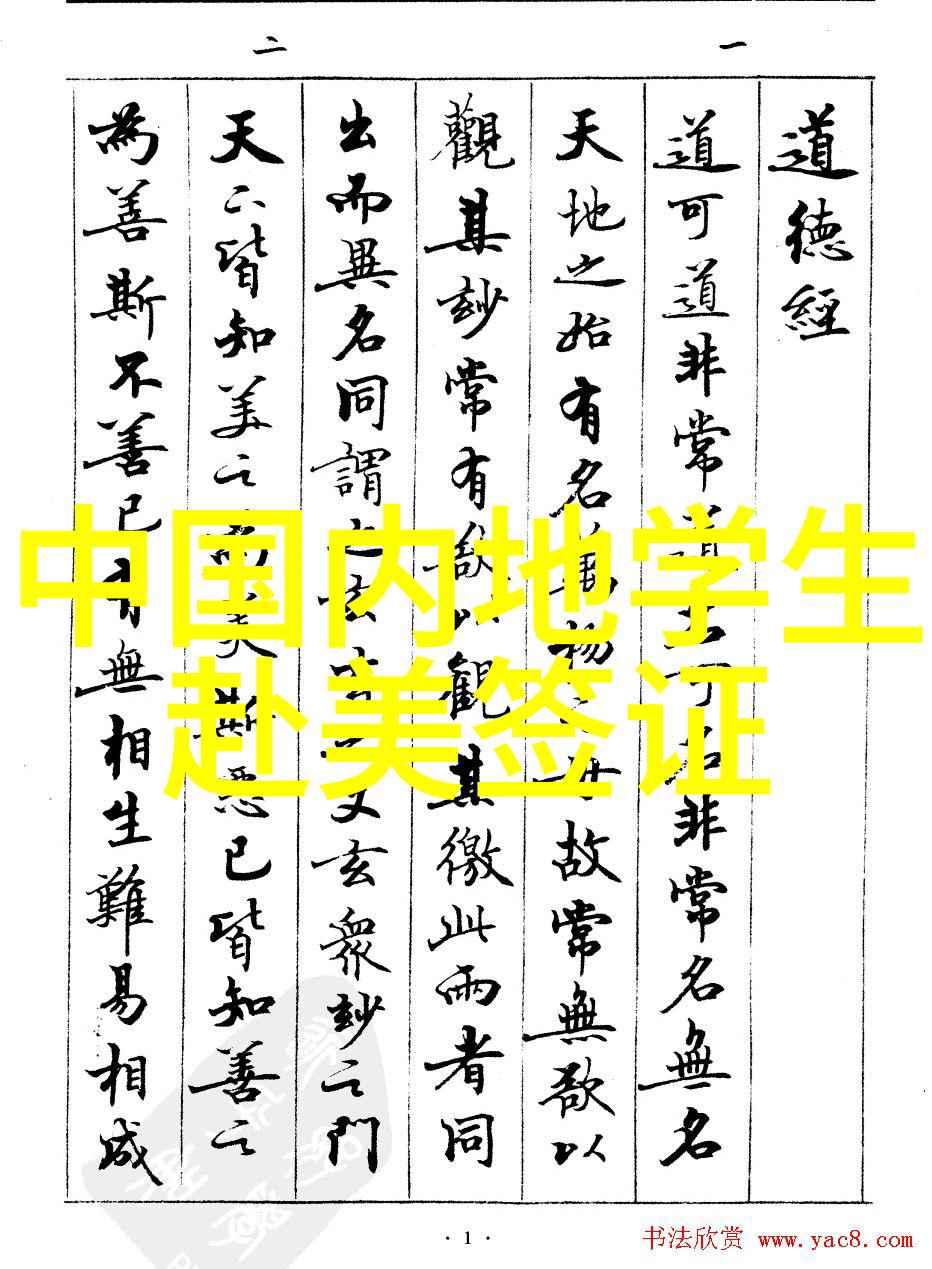 一
道德經
道可道非常道名可名非常名無名
天地之始有名萬物之母故常無欲以
觀其玅常有欲以觀其徼此兩者同
出而異名同謂之玄玄之又玄衆玅之門
二
天下皆知美之為美斯惡已皆知善之
為善斯不善已有無相生難易相成
中国内地学生
赴美签证
· 1 ·
书法欣赏 www.yac8.com